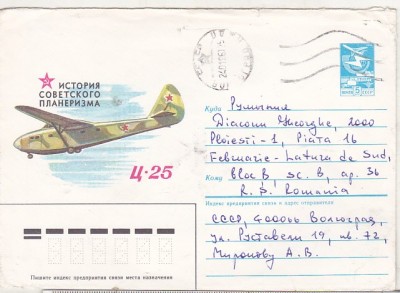 ИСТОРИЯ
СОВЕТСКОГО
ПЛАНЕРИЗМА
Ц-25
5
Куда Румыния
Diaconu Gheorghe, 2000
Ploiesti-1, Piata 16
Februarie-Latura de Sud,
Кому bloc B, sc. B, ap. 36
R. S. Romania
Индекс предприятия связи и адрес отправителя
СССР, 400066 Волгоград,
ул. Руставели 19, кв. 72,
Миронову А. В.
Пишите индекс предприятия связи места назначения